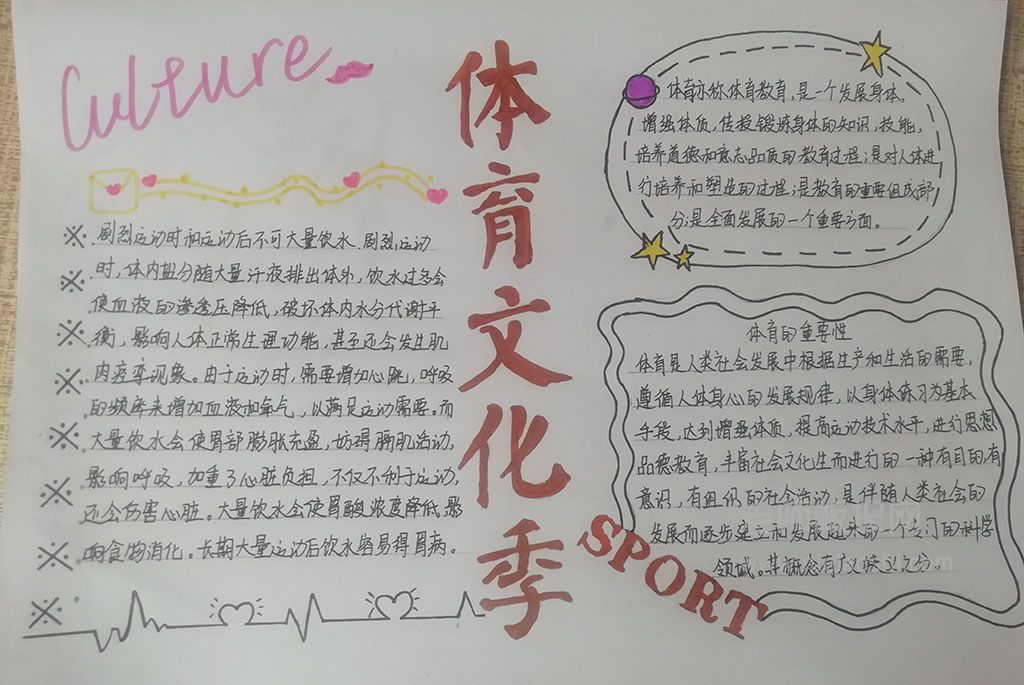 Culture
剧烈运动时和运动后不可大量饮水.剧烈运动
时,体内盐分随大量汗液排出体外,饮水过多会
使血液的渗透压降低,破坏体内水分代谢平
衡,影响人体正常生理功能,甚至还会发生肌
肉痉挛现象。由于运动时,需要增加心跳,呼吸
的频率来增加血液和氧气,以满足运动需要。而
大量饮水会使胃部膨胀充盈,妨碍膈肌活动,
影响呼吸,加重了心脏负担,不仅不利于运动,
还会伤害心脏。大量饮水会使胃酸浓度降低,影
响食物消化。长期大量运动后饮水容易得胃病。
体育文化季
体育亦称体育教育,是一个发展身体,
增强体质,传授锻炼身体的知识,技能,
培养道德和意志品质的教育过程;是对人体进
行培养和塑造的过程;是教育的重要组成部
分;是全面发展的一个重要方面。
体育的重要性
体育是人类社会发展中根据生产和生活的需要,
遵循人体身心的发展规律,以身体练习为基本
手段,达到增强体质,提高运动技术水平,进行思想
品德教育,丰富社会文化生而进行的一种有目的,有
意识,有组织的社会活动,是伴随人类社会的
发展而逐步建立和发展起来的一个专门的科学
领域。其概念有广义狭义之分。
SPORT